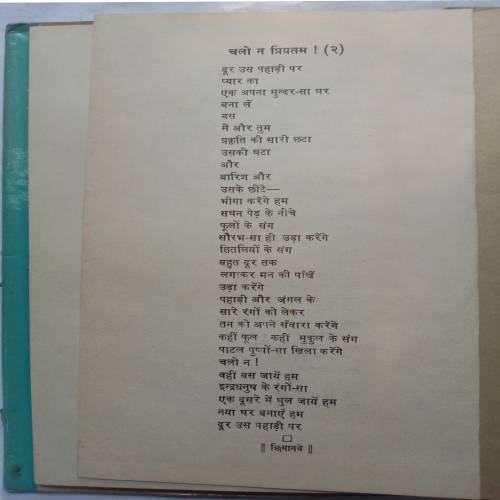 चलो न प्रियतम ! (२)
दूर उस पहाड़ी पर
प्यार का
एक अपना सुन्दर-सा घर
बना लें
बस
मैं और तुम
प्रकृति की सारी छटा
उसकी घटा
और
बारिश और
उसके छींटे—
भीगा करेंगे हम
सघन पेड़ के नीचे
फूलों के संग
सौरभ-सा ही उड़ा करेंगे
तितलियों के संग
बहुत दूर तक
लगाकर मन की पाँखें
उड़ा करेंगे
पहाड़ी और जंगल के
सारे रंगों को लेकर
तन को अपने सँवारा करेंगे
कहीं फूल : कहीं मुकुल के संग
पाटल पुष्पों-सा खिला करेंगे
चलो न !
वहीं बस जायें हम
इन्द्रधनुष के रंगों-सा
एक दूसरे में घुल जायें हम
नया घर बनाएँ हम
दूर उस पहाड़ी पर
|| छियानवे ||